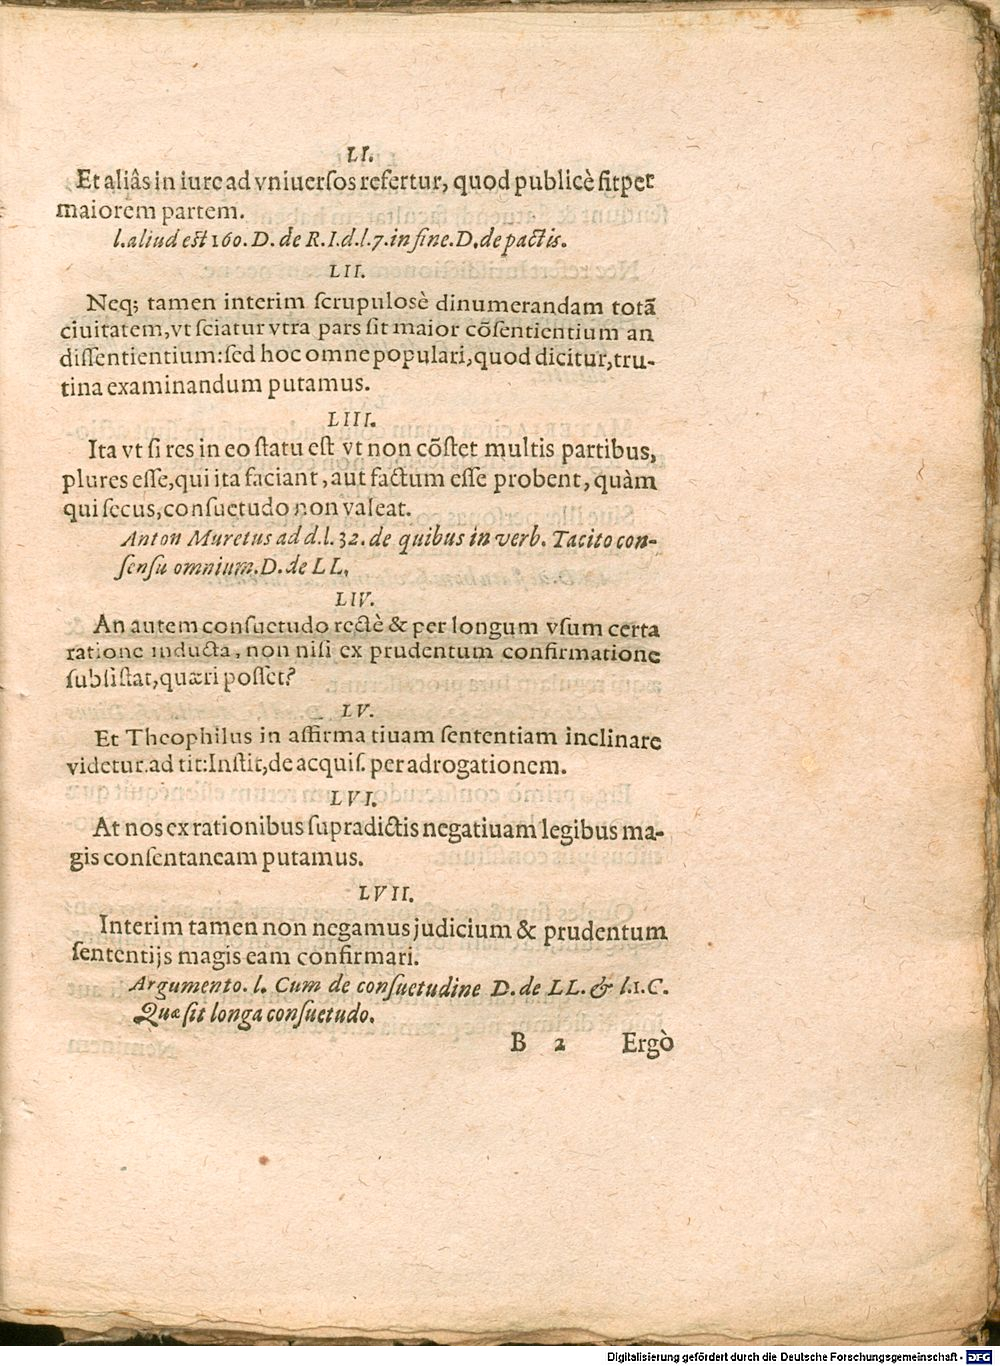 LI.
Et aliâs in iure ad vniuersos refertur, quod publicè fit per
maiorem partem.
l. aliud est 160. D. de R. I. d. l. 7. in fine. D. de pactis.
LII.
Neq; tamen interim scrupulosè dinumerandam totã
ciuitatem, vt sciatur vtra pars sit maior cõsentientium an
dissentientium: sed hoc omne populari, quod dicitur, tru-
tina examinandum putamus.
LIII.
Ita vt si res in eo statu est vt non cõstet multis partibus,
plures esse, qui ita faciant, aut factum esse probent, quàm
qui secus, consuetudo non valeat.
Anton Muretus ad d. l. 32. de quibus in verb. Tacito con-
sensu omnium. D. de LL,
LIV.
An autem consuetudo rectè & per longum vsum certa
ratione inducta, non nisi ex prudentum confirmatione
subsistat, quæri posset?
LV.
Et Theophilus in affirma tiuam sententiam inclinare
videtur. ad tit: Instit, de acquis. per adrogationem.
LVI.
At nos ex rationibus supradictis negatiuam legibus ma-
gis consentaneam putamus.
LVII.
Interim tamen non negamus judicium & prudentum
sententijs magis eam confirmari.
Argumento. l. Cum de consuetudine D. de LL. & l. 1. C.
Quæ sit longa consuetudo.
B 2 Ergò
Digitalisierung gefördert durch die Deutsche Forschungsgemeinschaft - DFG